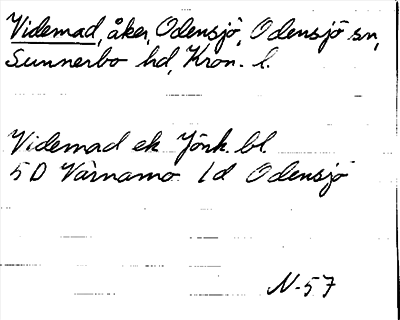 Videmad, åker, Odensjö, Odensjö sn,
Sunnerbo hd, Kron. l.
Videmad ek Jönk. bl.
5 D Värnamo 1d Odensjö
N-57